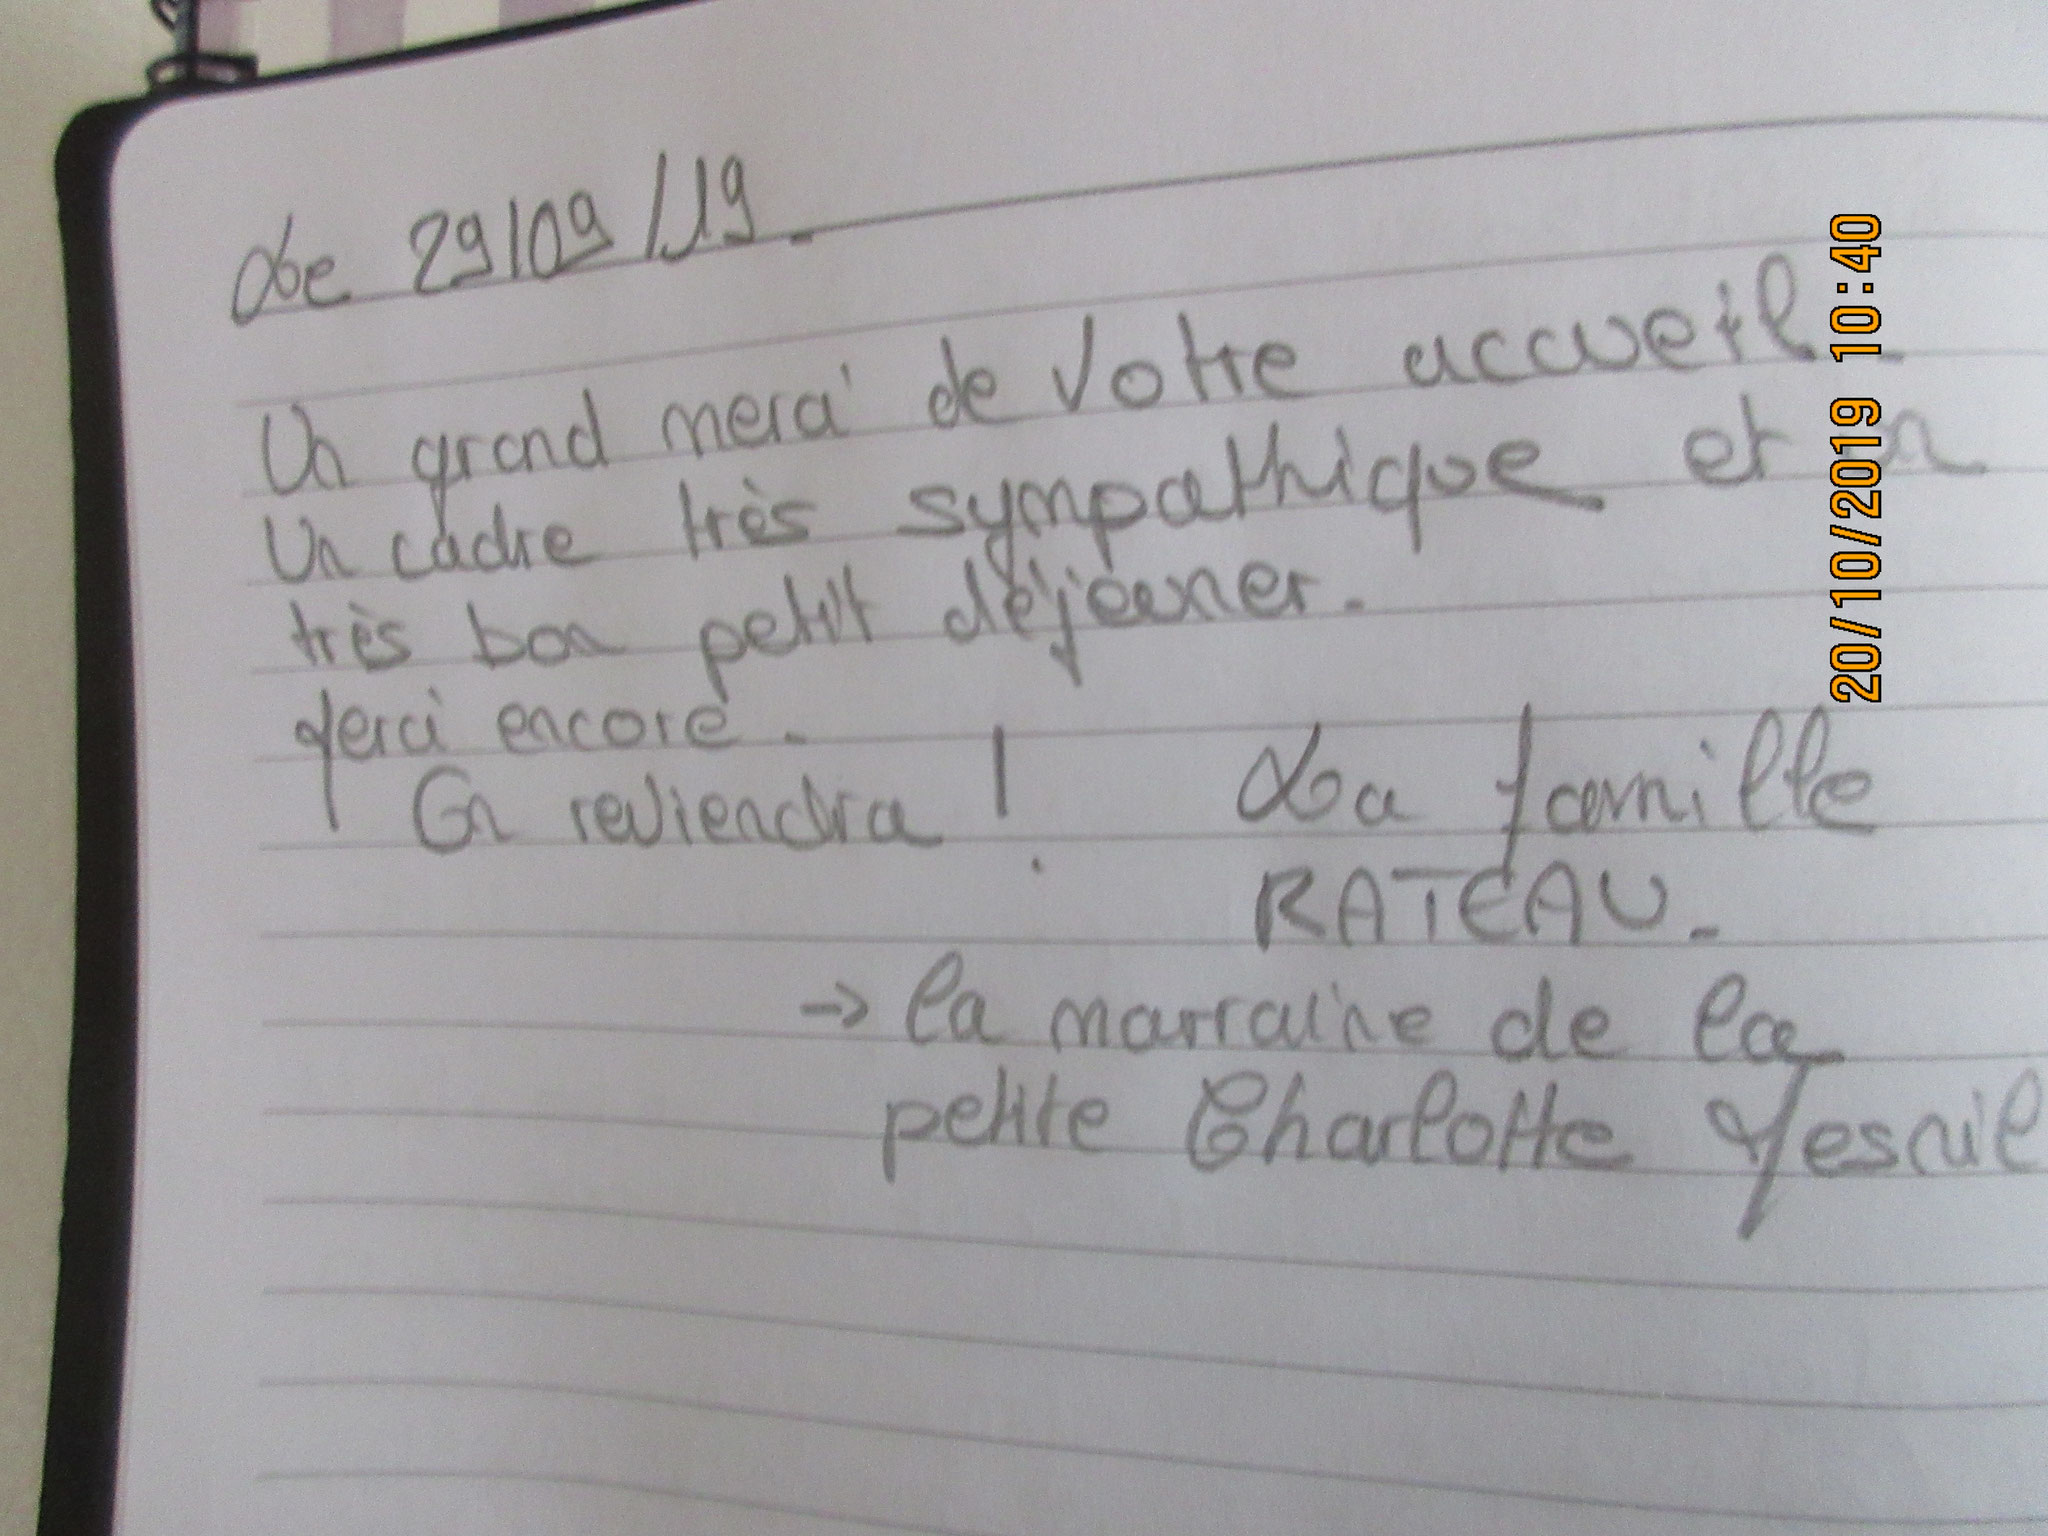 Le 29/09/19.
Un grand merci de votre accueil.
Un cadre très sympathique et un
très bon petit déjeuner.
Merci encore.
On reviendra !
La famille
RATEAU.
→ la marraine de la
petite Charlotte Mesnil
20/10/2019 10:40